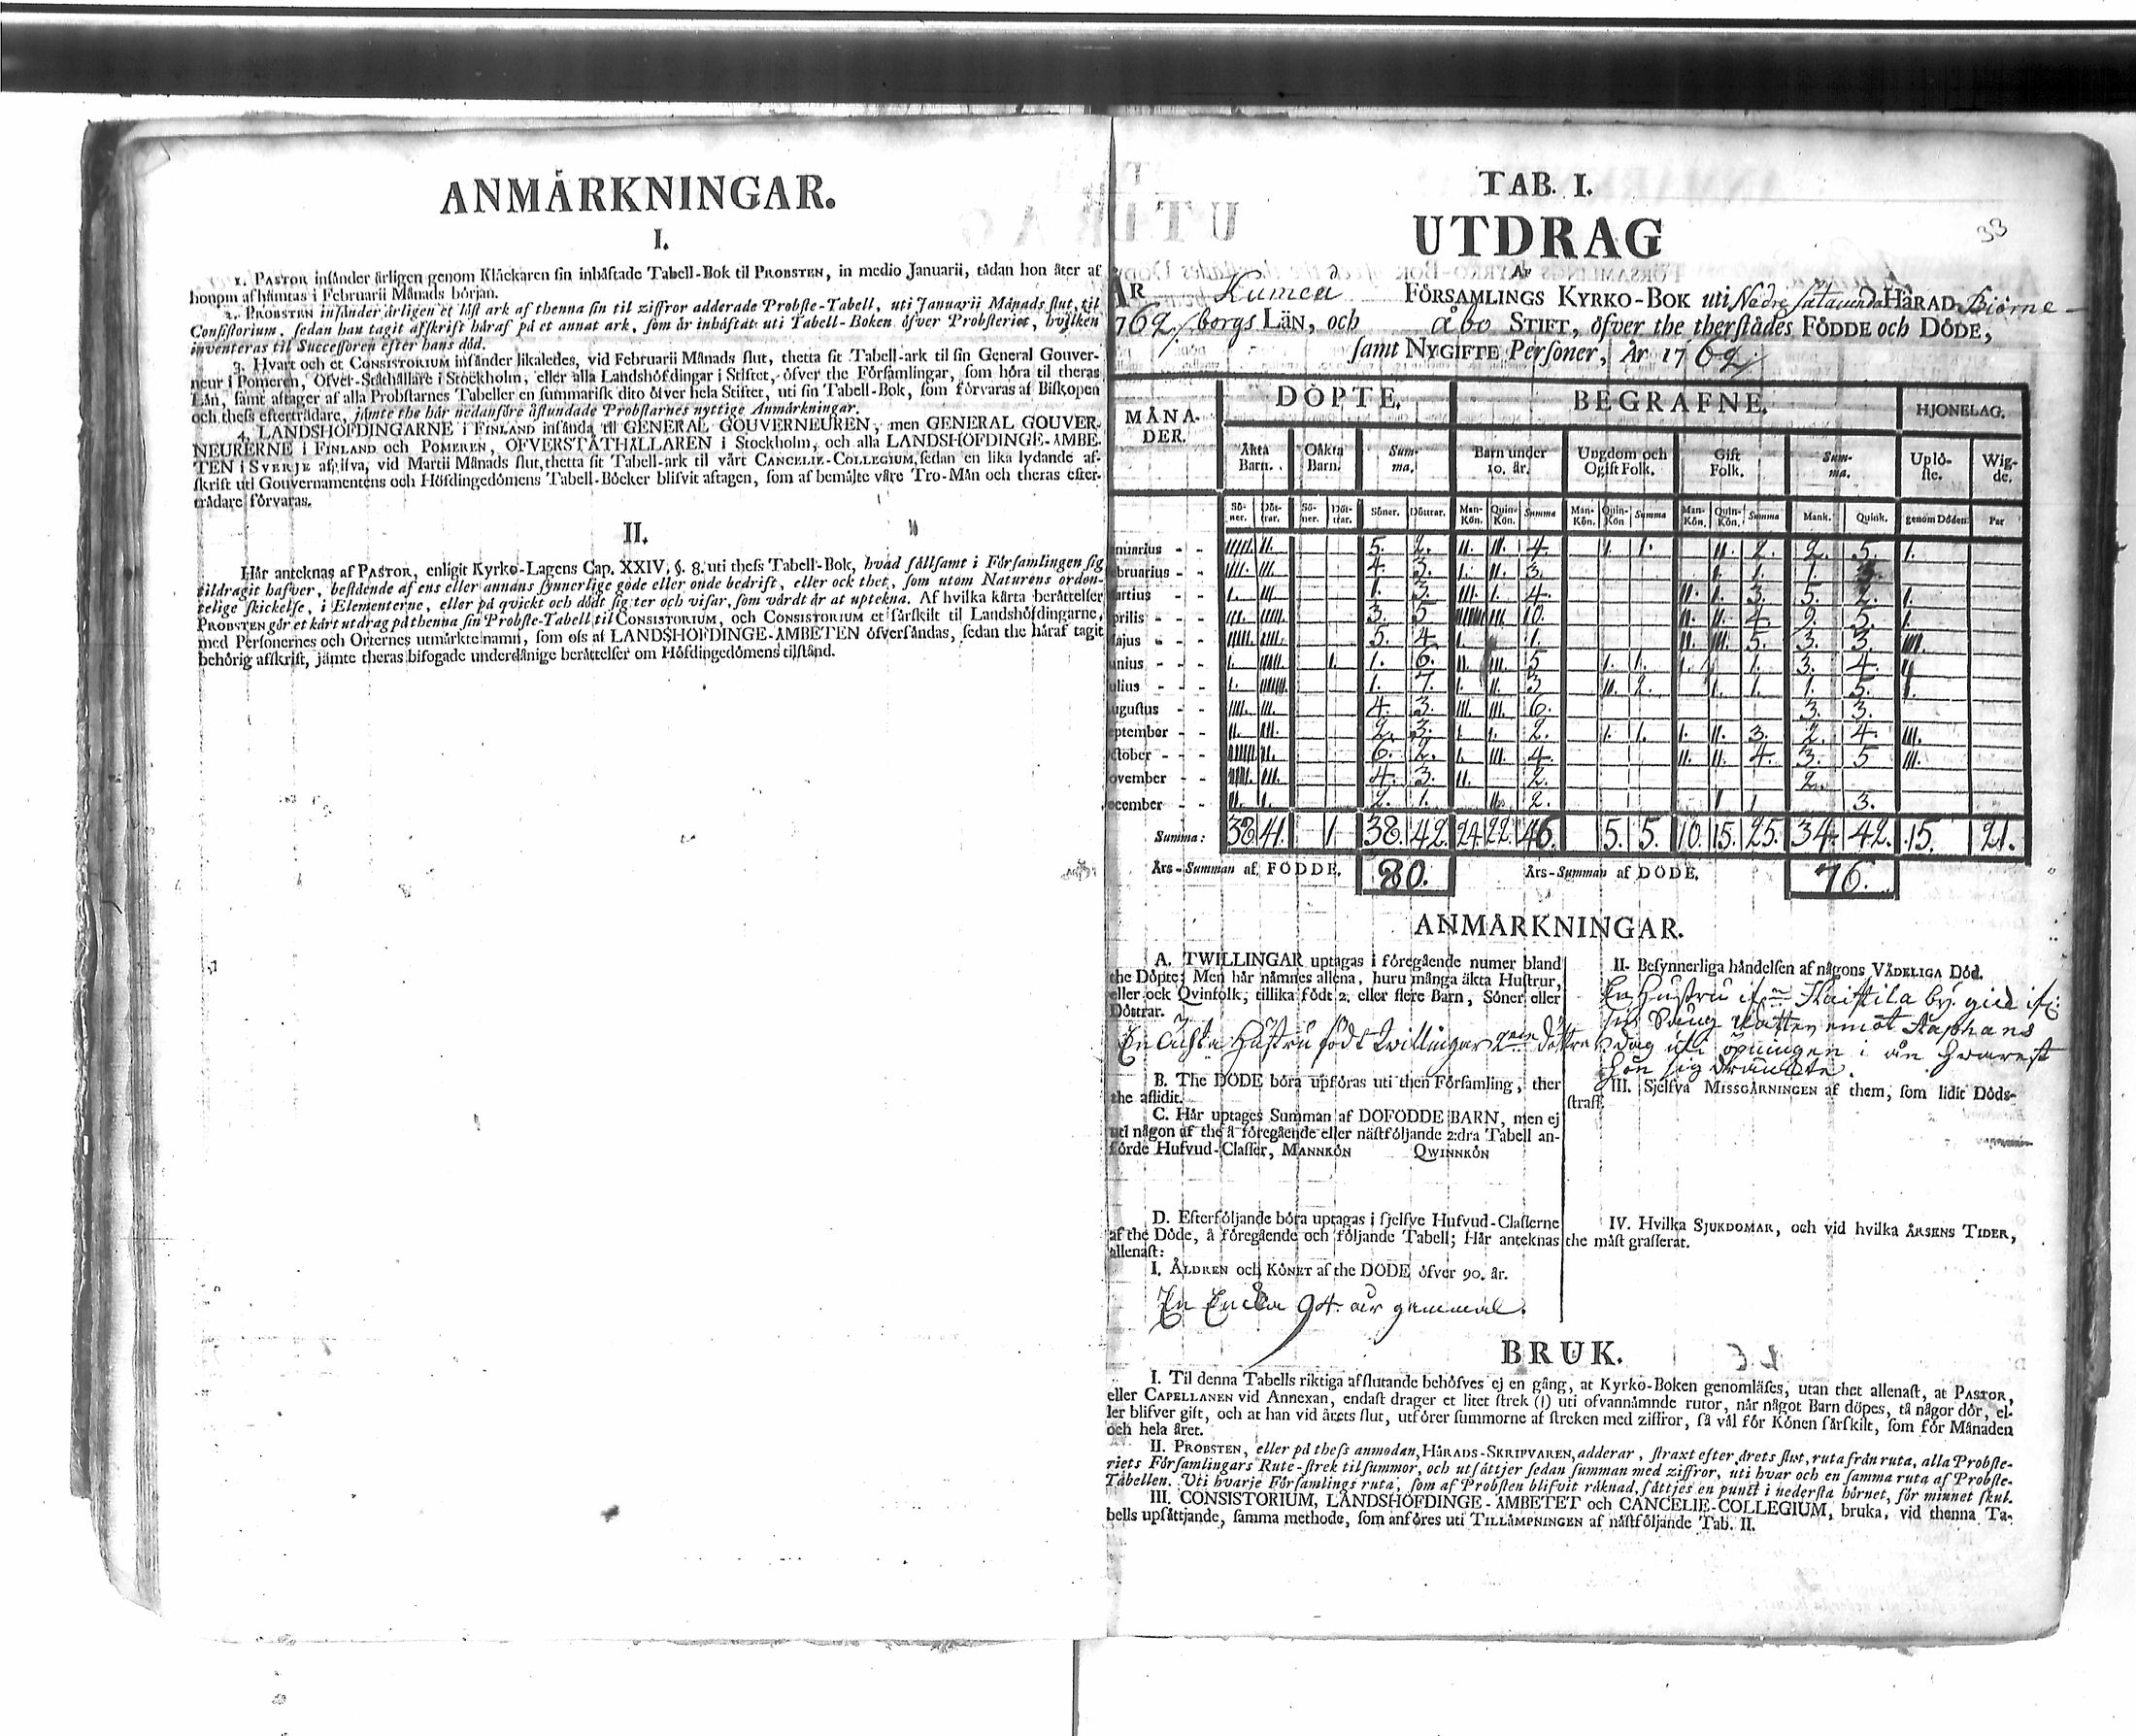 ANMÄRKNINGAR.
I.
1. PASTOR insänder årligen genom Klåckaren sin inhäftade Tabell-Bok til PROBSTEN, in medio Januarii, tådan hon åter af
honom afhämtas i Februarii Månads början.
2. PROBSTEN insänder årligen et löst ark af thenna sin til ziffror adderade Probste-Tabell, uti Januarii Månads slut, til
Consistorium, sedan han tagit afskrift häraf på et annat ark, som är inhäftat uti Tabell-Boken öfver Probsteriet, hvilken
inventeras til Successoren efter hans död.
3. Hvart och et CONSISTORIUM insänder likaledes, vid Februarii Månads slut, thetta sit Tabell-ark til sin General Gouver-
neur i Pomeren, Öfver-Ståthållare i Stockholm, eller alla Landshöfdingar i Stiftet, öfver the Församlingar, som höra til theras
Län, samt aftager af alla Probstarnes Tabeller en summarisk dito öfver hela Stiftet, uti sin Tabell-Bok, som förvaras af Biskopen
och thess efterträdare, jämte the här nedanföre åstundade Probstarnes nyttige Anmärkningar.
4. LANDSHÖFDINGARNE i FINLAND insända til GENERAL GOUVERNEUREN, men GENERAL GOUVER-
NEURERNE i FINLAND och POMEREN, ÖFVERSTÅTHÅLLAREN i Stockholm, och alla LANDSHÖFDINGE-ÄMBE-
TEN i SVERJE afgifva, vid Martii Månads slut, thetta sit Tabell-ark til vårt CANCELIE-COLLEGIUM, sedan en lika lydande af-
skrift uti Gouvernamentens och Höfdingedömens Tabell-Böcker blifvit aftagen, som af bemälte våre Tro-Män och theras efter-
trädare förvaras.
II.
Här anteknas af PASTOR, enligit Kyrko-Lagens Cap. XXIV. §. 8. uti thess Tabell-Bok, hvad sällsamt i Församlingen sig
tildragit hafver, bestående af ens eller annans synnerlige gode eller onde bedrift, eller ock thet, som utom Naturens orden-
telige skickelse, i Elementerne, eller på qvickt och dödt sig ter och visar, som värdt är at uptekna. Af hvilka kärta berättelser
PROBSTEN gör et kårt utdrag på thenna sin Probste-Tabell til CONSISTORIUM, och CONSISTORIUM et särskilt til Landshöfdingarne,
med Personernes och Orternes utmärkte namn, som oss af LANDSHÖFDINGE-ÄMBETEN öfversändas, sedan the häraf tagit
behörig afskrift, jämte theras bifogade underdånige berättelser om Höfdingedömens tilstånd.
33
TAB. I.
UTDRAG
AF
ÅR Kumea FÖRSAMLINGS KYRKO-BOK uti Nedre Satacunda HÄRAD Biörne-
762 borgs LÄN, och Åbo STIFT, öfver the therstädes FÖDDE och DÖDE,
samt NYGIFTE Personer, År 1762.
MÅNA-
DER.
DÖPTE.
BEGRAFNE.
HJONELAG.
Äkta Barn. Oäkta Barn. Sum-ma, Barn under 10. år. Ungdom och Ogift Folk. Gift Folk. Sum-ma. Uplö-ste. Wig-de.
Sö-ner. Döt-trar. Sö-ner. Döt-trar. Söner. Döttrar. Man-Kön. Quin-Kön. Summa Man-Kön. Quin-Kön Summa Man-Kön. Quin-Kön. Summa Mank. Quink. genom Döden Par
nuarius - - IIIII II. 5. 2. II. II. 4. 1. 1. II. 2. 2. 5. 1.
bruarius - - IIII. III. 4. 3. 1. II. 3. 1. 1. 1.
artius - - 1. III. 1. 3. III. 1. 4. II. 1. 3. 5. 2. 1.
prilis - - III. IIIII. 3. 5 10. II. II. 4. 9. 5. 1.
ajus - IIIII. IIII. 5. 4. 1. 1. II. III. 5. 3. 3. IIII.
unius - - 1. IIIII 1. 1. 6. II. III. 5 1. 1. 1. 1. 3. 4. II
ulius - - 1. IIIIIII. 1. 7. 1. II. 3 II. 2. 1. 1. 1. 5. 1.
ugustus - - IIII. III. 4. 3. III. III. 6. 3. 3.
eptember - - II. III. 2. 3. 1. 1. 2. 1. 1. 1. II. 3. 2. 4. III.
ctober - - IIIIII II. 6. 2. 1. III. 4. II. II. 4. 3. 5 III.
ovember - - IIII. III. 4. 3. II. 2. 2.
ecember - - II. 1. 2. 1. II. 2. 1 1 3.
Summa: 38 41. 1 38. 42. 24. 22. 46. 5. 5. 10. 15. 25. 34. 42. 15. 21.
Års-Summan af FÖDDE. 80. Års-Summan af DÖDE. 76.
ANMÄRKNINGAR.
A. TWILLINGAR uptagas i föregående numer bland
the Döpte; Men här nämnes allena, huru många äkta Hustrur,
eller ock Qvinfolk, tillika födt 2. eller flere Barn, Söner eller
Döttrar.
En Ächta Hustru födt twillingar 2ne döttrar
B. The DÖDE böra upföras uti then Församling, ther
the aflidit.
C. Här uptages Summan af DÖFÖDDE BARN, men ej
uti någon af the å föregående eller nästföljande 2:dra Tabell an-
förde Hufvud-Classer, MANNKÖN QWINNKÖN
D. Efterföljande böra uptagas i sjelfve Hufvud-Classerne
af the Döde, å föregående och följande Tabell; Här anteknas
allenast:
I. ÅLDREN och KÖNET af the DÖDE öfver 90. år.
En Encka 94. år gammal.
II. Besynnerliga händelsen af någons VÅDELIGA Död.
En Hustru ifrn Kaistila by gick
emot Staphans
dag uti öpningen i ån hvarest
hon sig dränckte.
III. Sjelfva MISSGÄRNINGEN af them, som lidit Döds-
straff.
IV. Hvilka SJUKDOMAR, och vid hvilka ÅRSENS TIDER,
the mäst grasserat.
BRUK.
I. Til denna Tabells riktiga afslutande behöfves ej en gång, at Kyrko-Boken genomläses, utan thet allenast, at PASTOR,
eller CAPELLANEN vid Annexan, endast drager et litet strek (I) uti ofvannämnde rutor, når något Barn döpes, tå någor dör, el-
ler blifver gift, och at han vid årets slut, utförer summorne af streken med ziffror, så väl för Könen särskilt, som för Månaden
och hela året.
II. PROBSTEN, eller på thess anmodan, HÄRADS-SKRIFVAREN, adderar, straxt efter årets slut, ruta från ruta, alla Probste-
riets Församlingars Rute-strek til summor, och utsättjer sedan summan med ziffror, uti hvar och en samma ruta af Probste-
Tabellen. Uti hvarje Församlings ruta, som af Probsten blifvit räknad, sättjes en punct i nedersta hörnet, för minnet skul.
III. CONSISTORIUM, LANDSHÖFDINGE-ÄMBETET och CANCELIE-COLLEGIUM, bruka, vid thenna Ta-
bells upsättjande, samma methode, som anföres uti TILLÄMPNINGEN af nästföljande Tab. II.